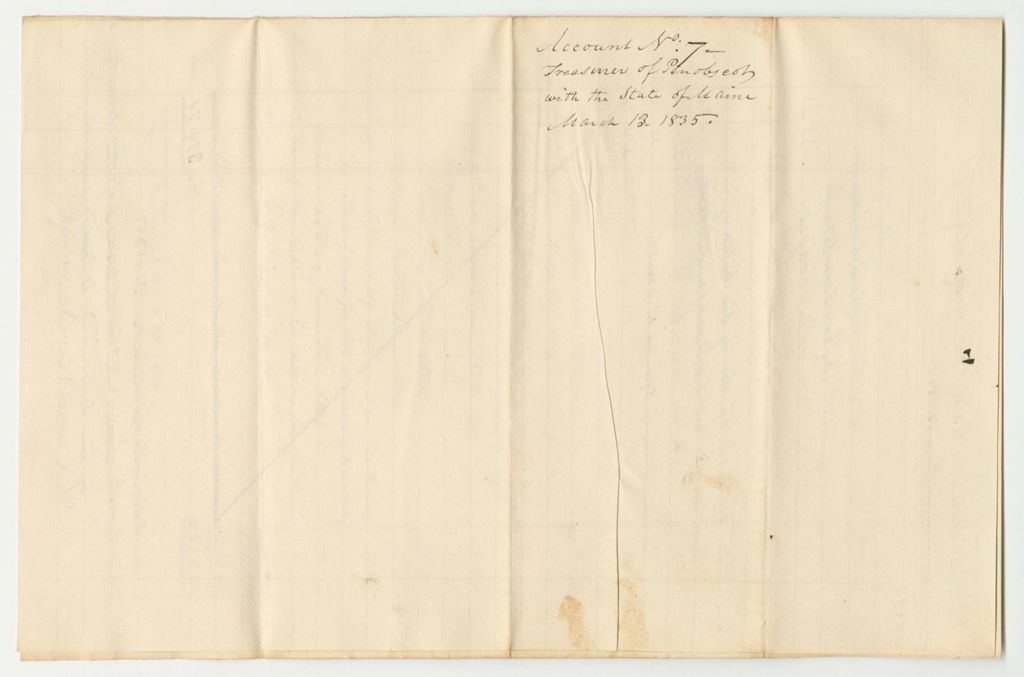 Account No. 7-
Treasurer of Penobscot
with the State of Maine
March 13. 1835.